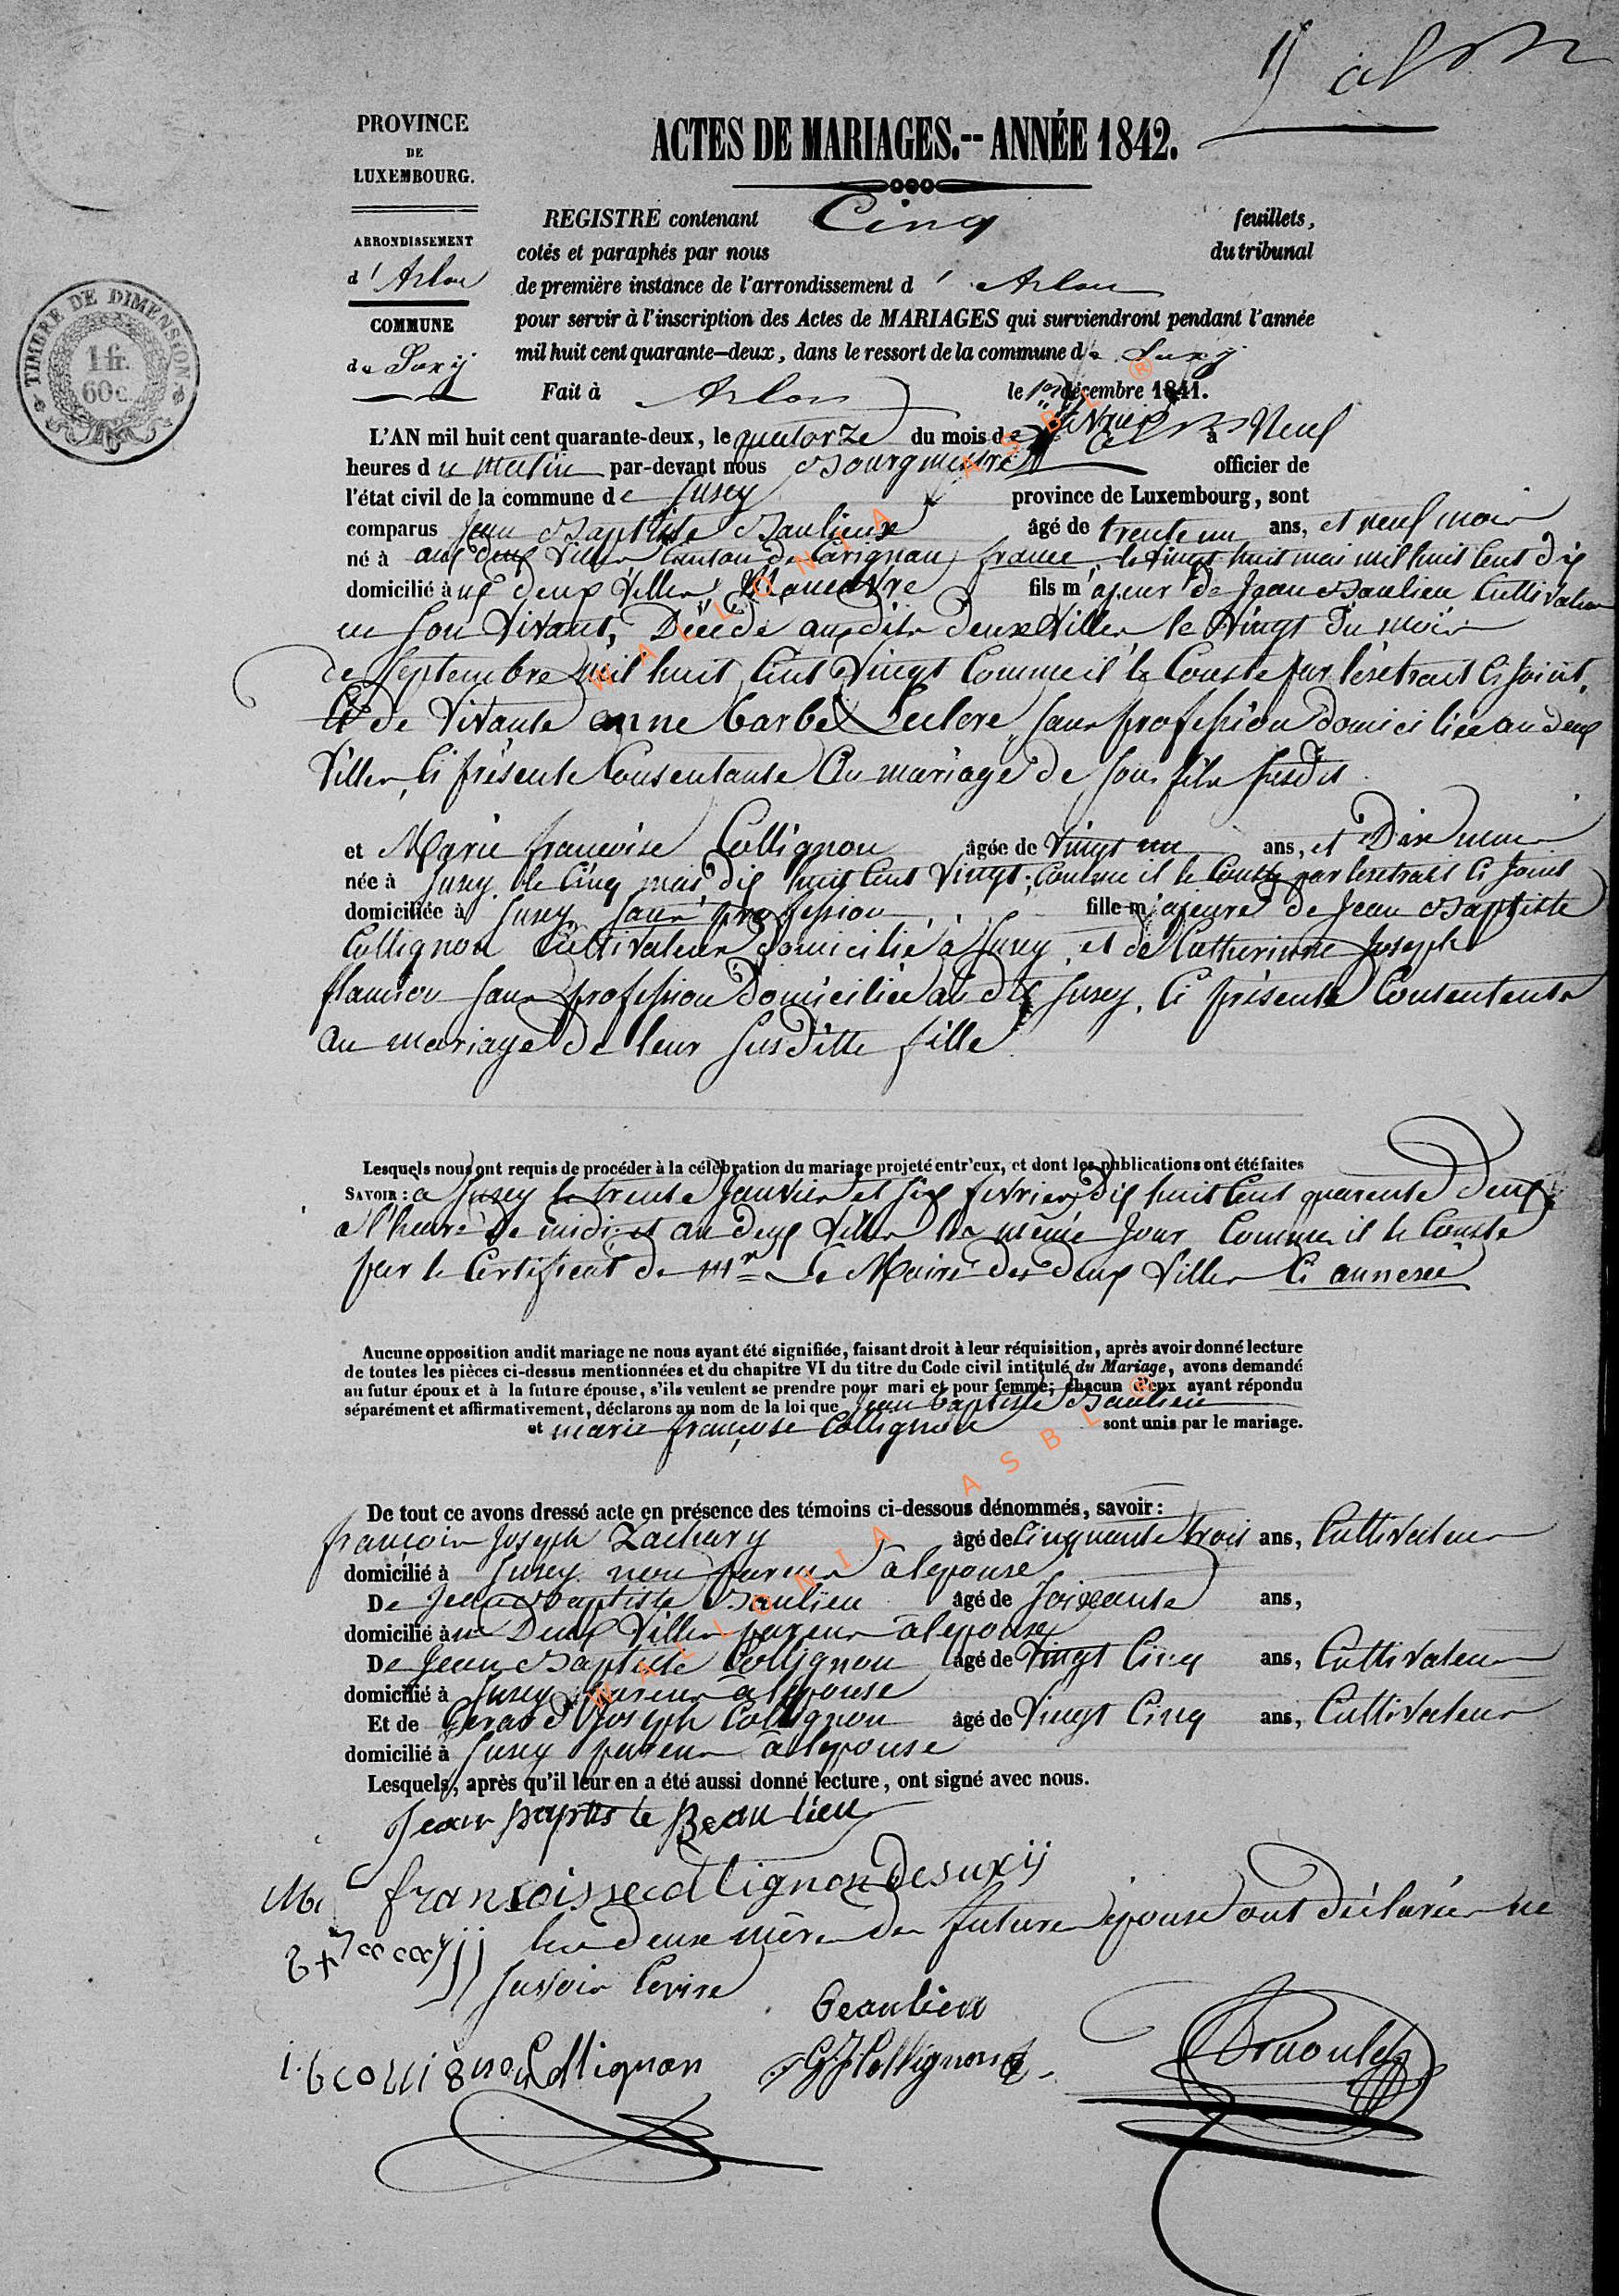 PROVINCE
DE
LUXEMBOURG.
ARRONDISSEMENT
d' Arlon
COMMUNE
de Suxÿ
TIMBRE DE DIMENSION
1 fr.
60 c.
ACTES DE MARIAGES.-- ANNÉE 1842.
REGISTRE contenant Cinq feuillets,
cotés et paraphés par nous du tribunal
de première instance de l'arrondissement d' Arlon
pour servir à l'inscription des Actes de MARIAGES qui surviendront pendant l'année
mil huit cent quarante-deux, dans le ressort de la commune de Suxÿ
Fait à Arlon le 1er décembre 1841.
L'AN mil huit cent quarante-deux, le quatorze du mois de fevrier à Neuf
heures du matin par-devant nous Bourgmestre officier de
l'état civil de la commune de Suxy province de Luxembourg, sont
comparus Jean Baptiste Baulieux âgé de trente un ans, et neuf mois
né à aux deux Villes Canton de Carignan france, le vingt huit mai mil huit Cent dix
domicilié à ux deux Villes, Manœuvre fils majeur de Jean Baulieu Cultivateur
en Son Vivant, Décédé aux dits deux Villes le Vingt du mois
de Septembre mil huit Cent Vingt Comme il le Conste par l'éxetrait Ci Joint,
Et de Vivante anne barbe Leclere, Sans profession domiciliée au deux
Villes, Ci présente Consentante Au mariage de Son fils Susdit
et Marie françoise Collignon âgée de Vingt un ans, et Dix mois
née à Suxy le Cinq mai dix huit Cent Vingt, Comme il le Conste par l'exetrait Ci Joint
domiciliée à Suxy Sans profession fille majeure de Jean Baptiste
Collignon Cultivateur domicilié à Suxy, et de Catherinne Joseph
flamion Sans profession Domiciliée au dit Suxy, Ci présente Consentente
au mariage de leur Susditte fille.
Lesquels nous ont requis de procéder à la célébration du mariage projeté entr'eux, et dont les publications ont été faites
SAVOIR : à Suxey le trente Janvier et Six fevrier dix huit Cent quarente deux
a l'heure de midi et au deux Villes les même Jour Comme il le Conste
par le Certificat de Mr Le Maire des deux Villes Ci annexée
Aucune opposition audit mariage ne nous ayant été signifiée, faisant droit à leur réquisition, après avoir donné lecture
de toutes les pièces ci-dessus mentionnées et du chapitre VI du titre du Code civil intitulé du Mariage, avons demandé
au futur époux et à la future épouse, s'ils veulent se prendre pour mari et pour femme; chacun d'eux ayant répondu
séparément et affirmativement, déclarons au nom de la loi que Jean baptiste Baulieu
et marie françoise Collignon sont unis par le mariage.
De tout ce avons dressé acte en présence des témoins ci-dessous dénommés, savoir :
françois Joseph Zachary âgé de Cinquente trois ans, Cultivateur
domicilié à Suxey non parent à l'epouse
De Jean baptiste Baulieu âgé de Soixante ans,
domicilié à ux Deux Villes parent à l'epoux
De Jean Baptiste Collignon âgé de Vingt Cinq ans, Cultivateur
domicilié à Suxey parent a lepouse
Et de Gerard Joseph Collignon âgé de Vingt Cinq ans, Cultivateur
domicilié à Suxey parent à lepouse
Lesquels, après qu'il leur en a été aussi donné lecture, ont signé avec nous.
Jean baptiste Beaulieu
M françoisse collignon de suxÿ
les deux mères des futures épouse ont déclarées ne
Savoir Ecrire
beaulieu
i b collignon Collignon G J Collignon
WALLONIA ASBL ®
WALLONIA ASBL ®